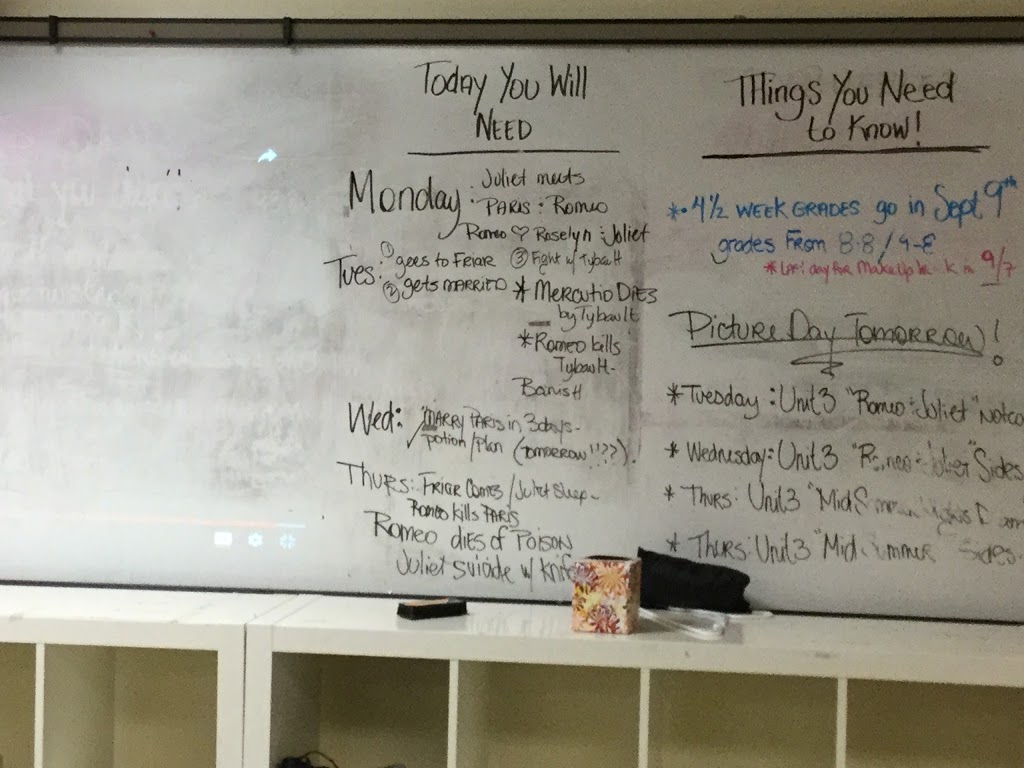 Today You Will
NEED
Monday
· Juliet meets
· PARIS : Romeo
Romeo ♡ Roselyn : Juliet
Tues:
① goes to FRIAR
② gets MARRIED
③ Fight w/ Tybalt
* Mercutio Dies
by Tybalt
* Romeo kills
Tybalt-
Banish
Wed:
MARRY PARIS in 3 days-
potion/plan (Tomorrow!!??)!
Thurs: FRIAR Comes / Juliet Sleep-
Romeo kills PARIS
Romeo dies of POISON
Juliet suicide w/ knife
THings You Need
to Know!
*· 4 1/2 WEEK GRADES go in Sept 9th
grades From 8-8 /
* day for Make Up 9/7
Picture Day Tomorrow!
* Tuesday : Unit 3 "Romeo : Juliet"
* Wednesday: Unit 3 Sides
* Thurs: Unit 3 "Mid
* Thurs: Unit 3 "Mid Sides-